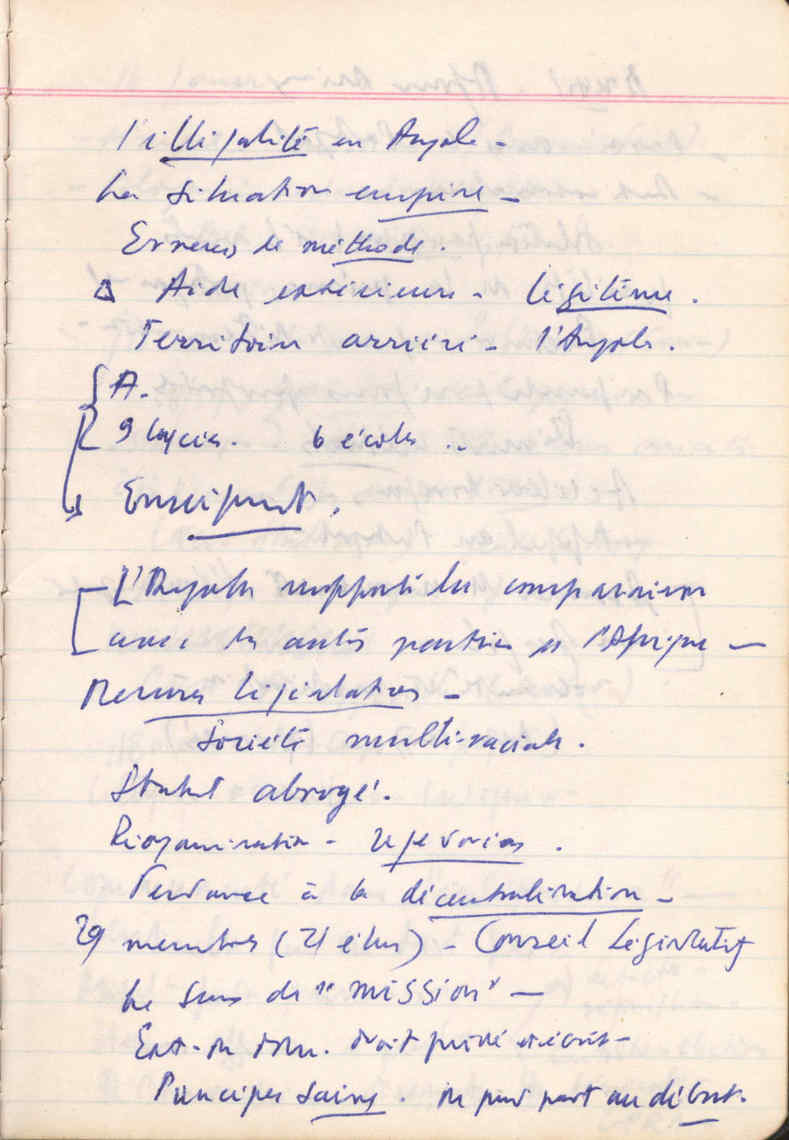 l'illégalité en Angola -
La situation empire -
Erreurs de méthode.
Δ Aide extérieure - légitime.
Territoire arriéré - l'Angola.
A.
9 lycées. 6 écoles ..
Enseignement.
L'Angola supporte la comparaison
avec les autres parties de l'Afrique -
Mesures législatives -
Société multi-raciale.
Statut abrogé.
Réorganisation -
Tendance à la décentralisation -
29 membres (21 élus) - Conseil Législatif
Le sens de "mission" -
droit privé
Principes sains. au début.